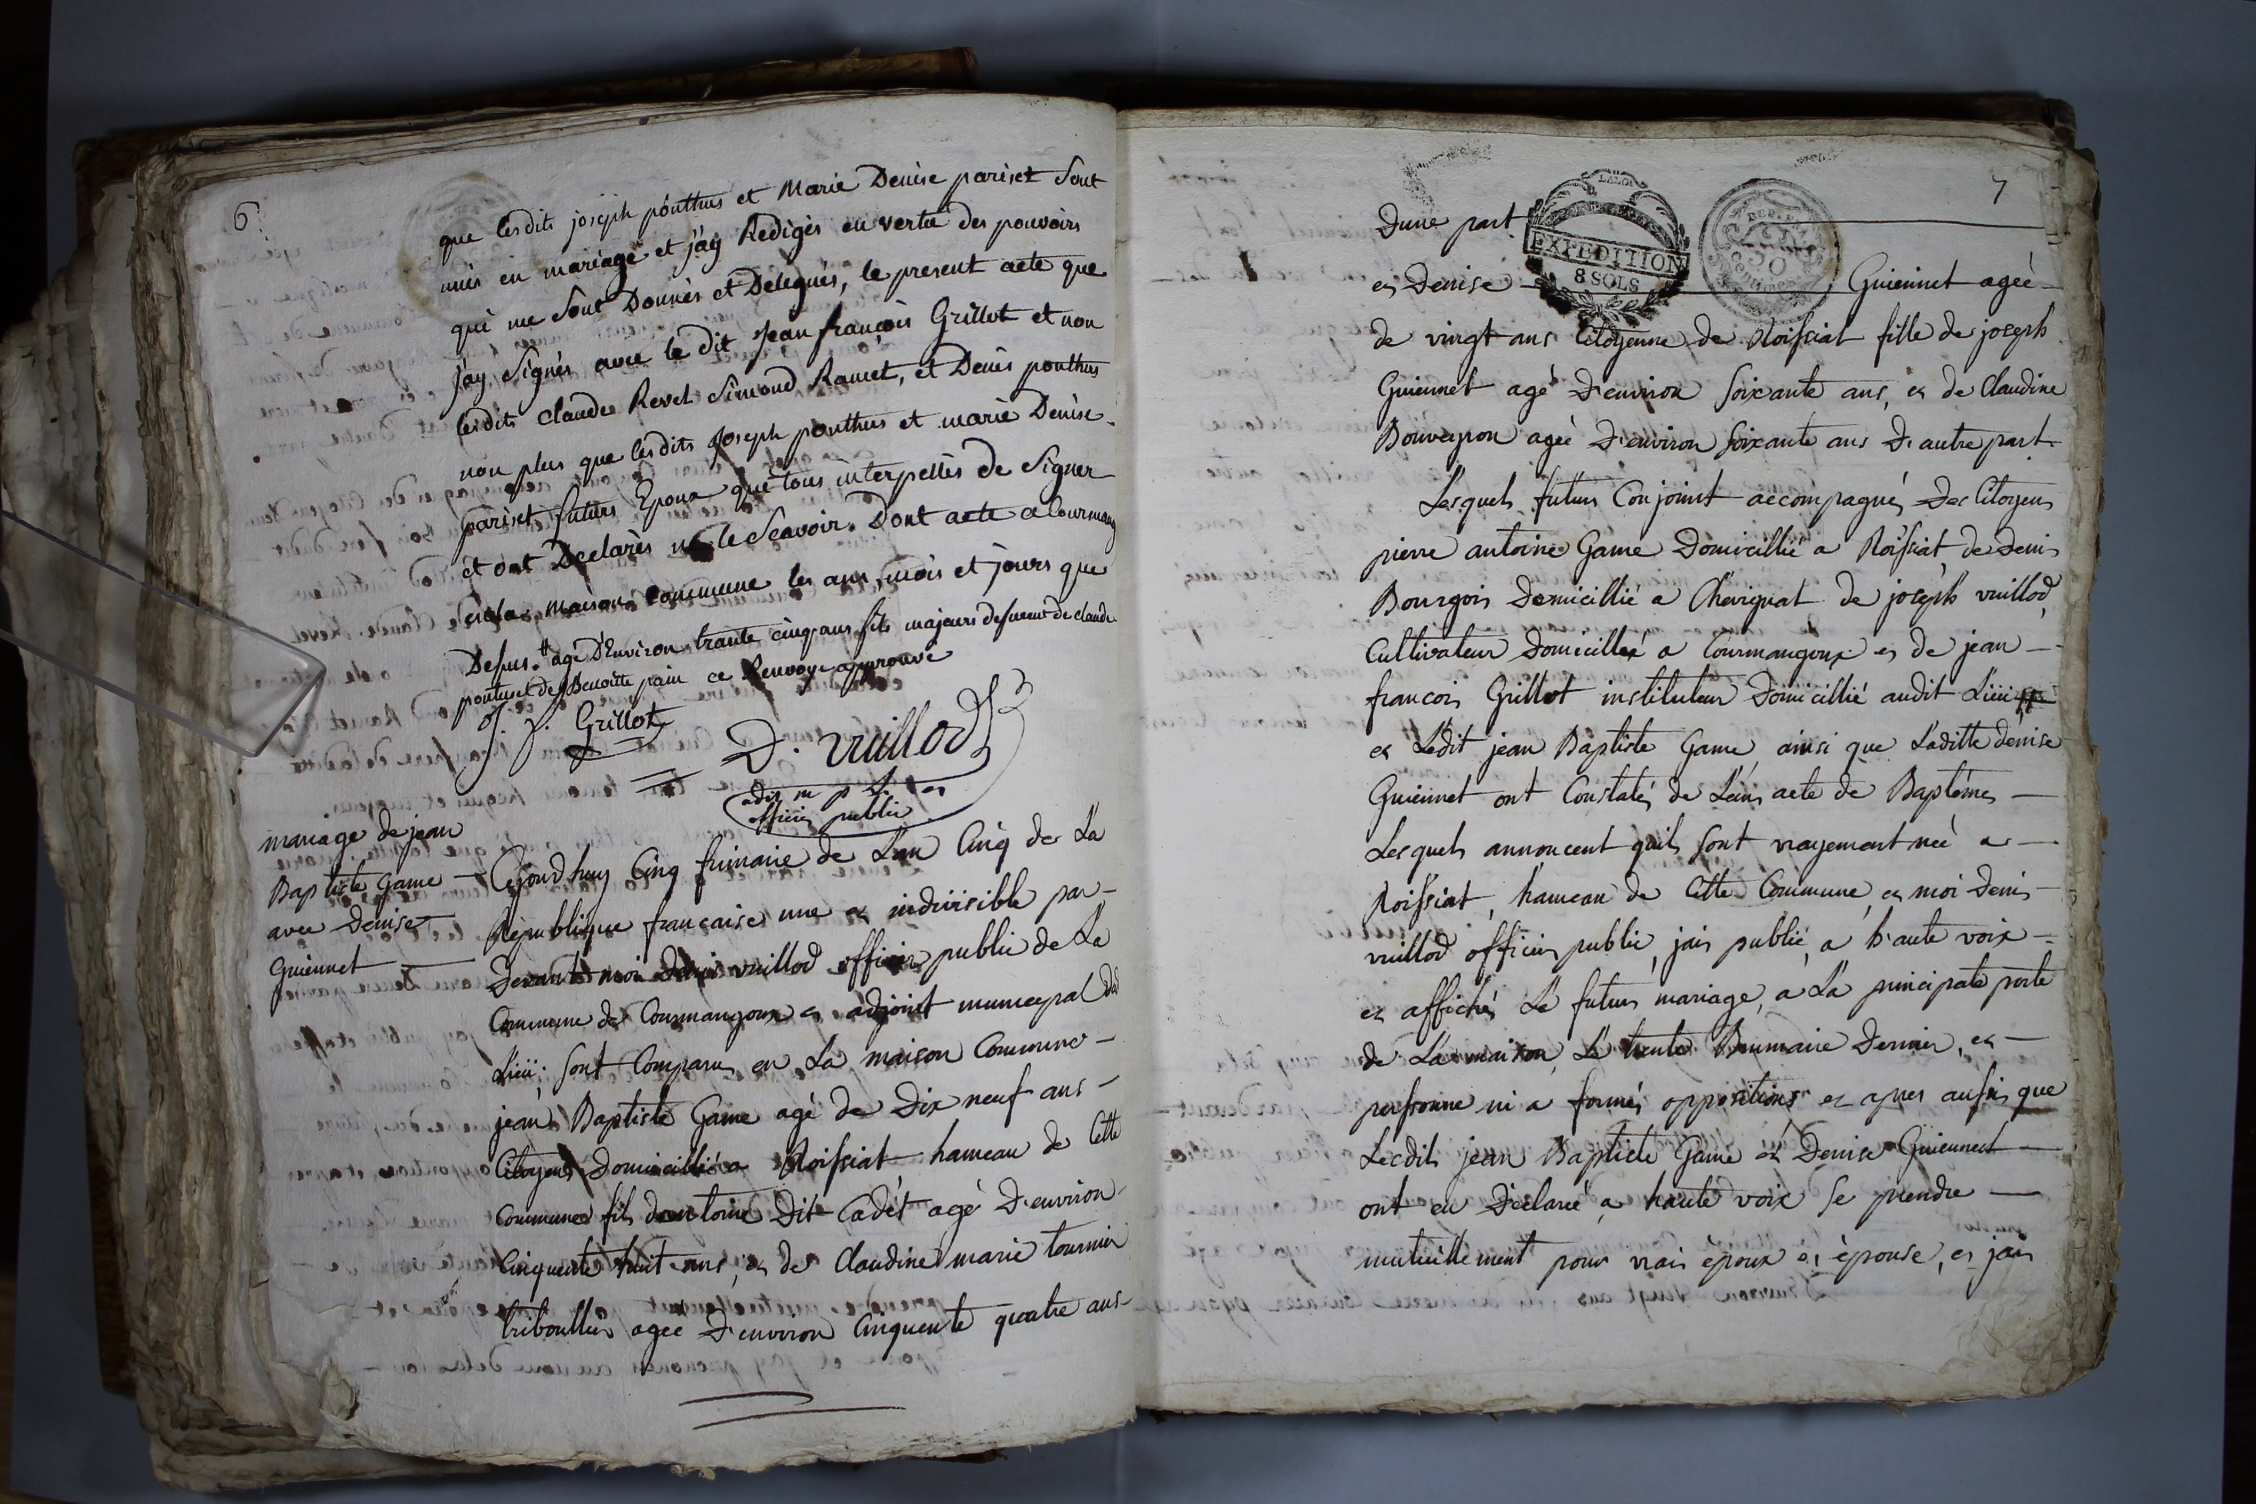 6.
que lesdits joseph ponthus et Marie Denise pariset Sont
unis en mariage et j'ay Redigés en vertu des pouvoirs
qui me Sont Donnés et Délegués, le present acte que
j'ay Signés avec le dit Jean françois Grillot et non
lesdits claude Revel Simond Ramet, et Denis ponthus
non plus que lesdits Joseph ponthus et marie Denise
pariset futurs Epoux que tous interpellés de Signer
et ont Declarés ne le Scavoir. Dont acte a Courmang
en la maison commune les ans, mois et jours que
Desus. agé D'Environ trante cinq ans fils majeurs de claude
pontus et de Benoitte pain ce Renvoye approuvé
J. f. Grillot
D. vuillod
adj m p
officier public
mariage de jean
Baptiste Game
avec Denise
Guiennet
Cejourdhuy Cinq frimaire de L'an Cinq de La
Republique francaise une et indivisible par
Devant moi Denis vuillod officier public de La
Commune de Courmangoux et adjoint municipal dud
Lieu; sont Comparus en La maison Commune
jean Baptiste Game agé de Dix neuf ans
Citoyens Domicillié a Roissiat hameau de Cette
commune fils dantoine Dit Cadet agé D'environ
Cinquente huit ans, et de Claudine marie tournier
triboullier agée D'environ Cinquente quatre ans
7
Dune part
EXPEDITION
8 SOLS
et Denise Guiennet agée
de vingt ans Citoyenne de Roissiat fille de joseph
Guiennet agé D'environ soixante ans, et de Claudine
Bouveyron agée D'environ soixante ans D'autre part
Lesquels futurs Conjoint accompagnés Des Citoyens
pierre antoine Game Domicillié a Roissiat de Denis
Bourgois Domicillié a Chevignat de joseph vuillod
Cultivateur Domicillié a Courmangoux et de jean
francois Grillot instituteur Domicillié audit Lieu
et Ledit jean Baptiste Game ainsi que Laditte denise
Guiennet ont Constatés de Leurs acte de Baptêmes
Lesquels annoncent quils sont vrayement neé a
Roissiat, hameau de Cette Commune, et moi Denis
vuillod officier public, jais publié, a haute voix
et affichés Le futur mariage, a La principale porte
de La maison Le trente Brumaire Dernier, et
personne ni a formés oppositions et apres aussi que
Lesdits jean Baptiste Game et Denise Guiennet
ont eu Déclaré a haute voix se prendre
mutuellement pour vrais époux et épouse, et jais